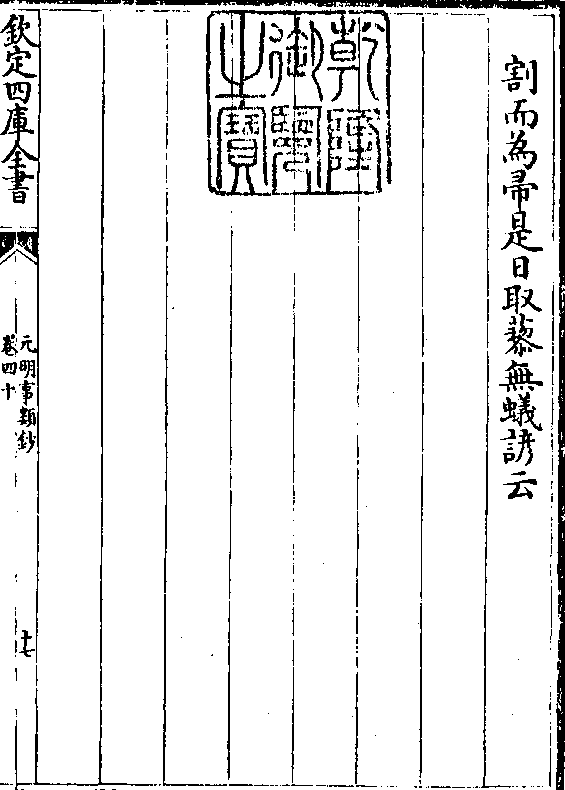 割而為帚是日取藜無蟻諺云
乾隆
御覽
之寶
欽定四庫全書
元明事類鈔
卷四十
十七